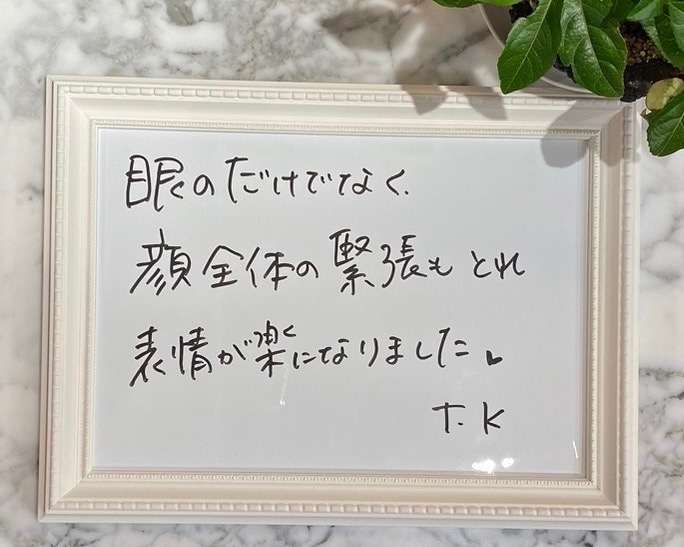 眼のだけでなく、
顔全体の緊張もとれ
表情が楽になりました
T.K